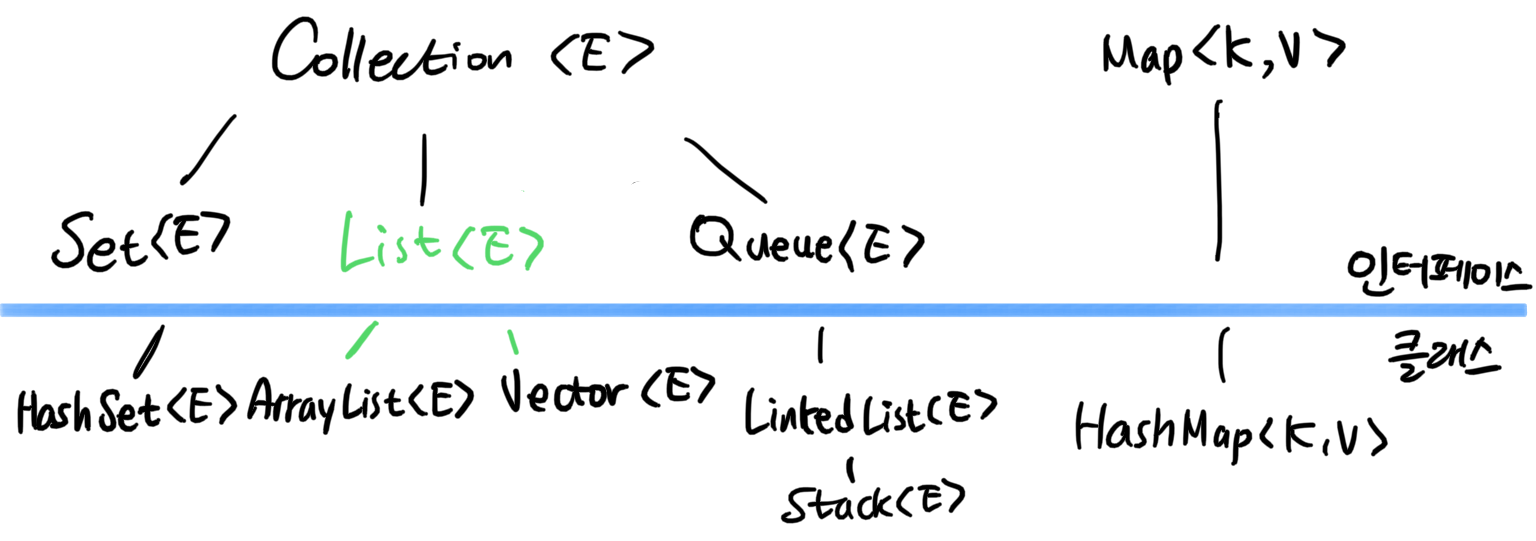 Collection <E>
Map<K,V>
Set<E>
List<E>
Queue<E>
인터페이스
클래스
HashSet<E>
ArrayList<E>
Vector <E>
LinkedList<E>
HashMap<K,V>
Stack<E>